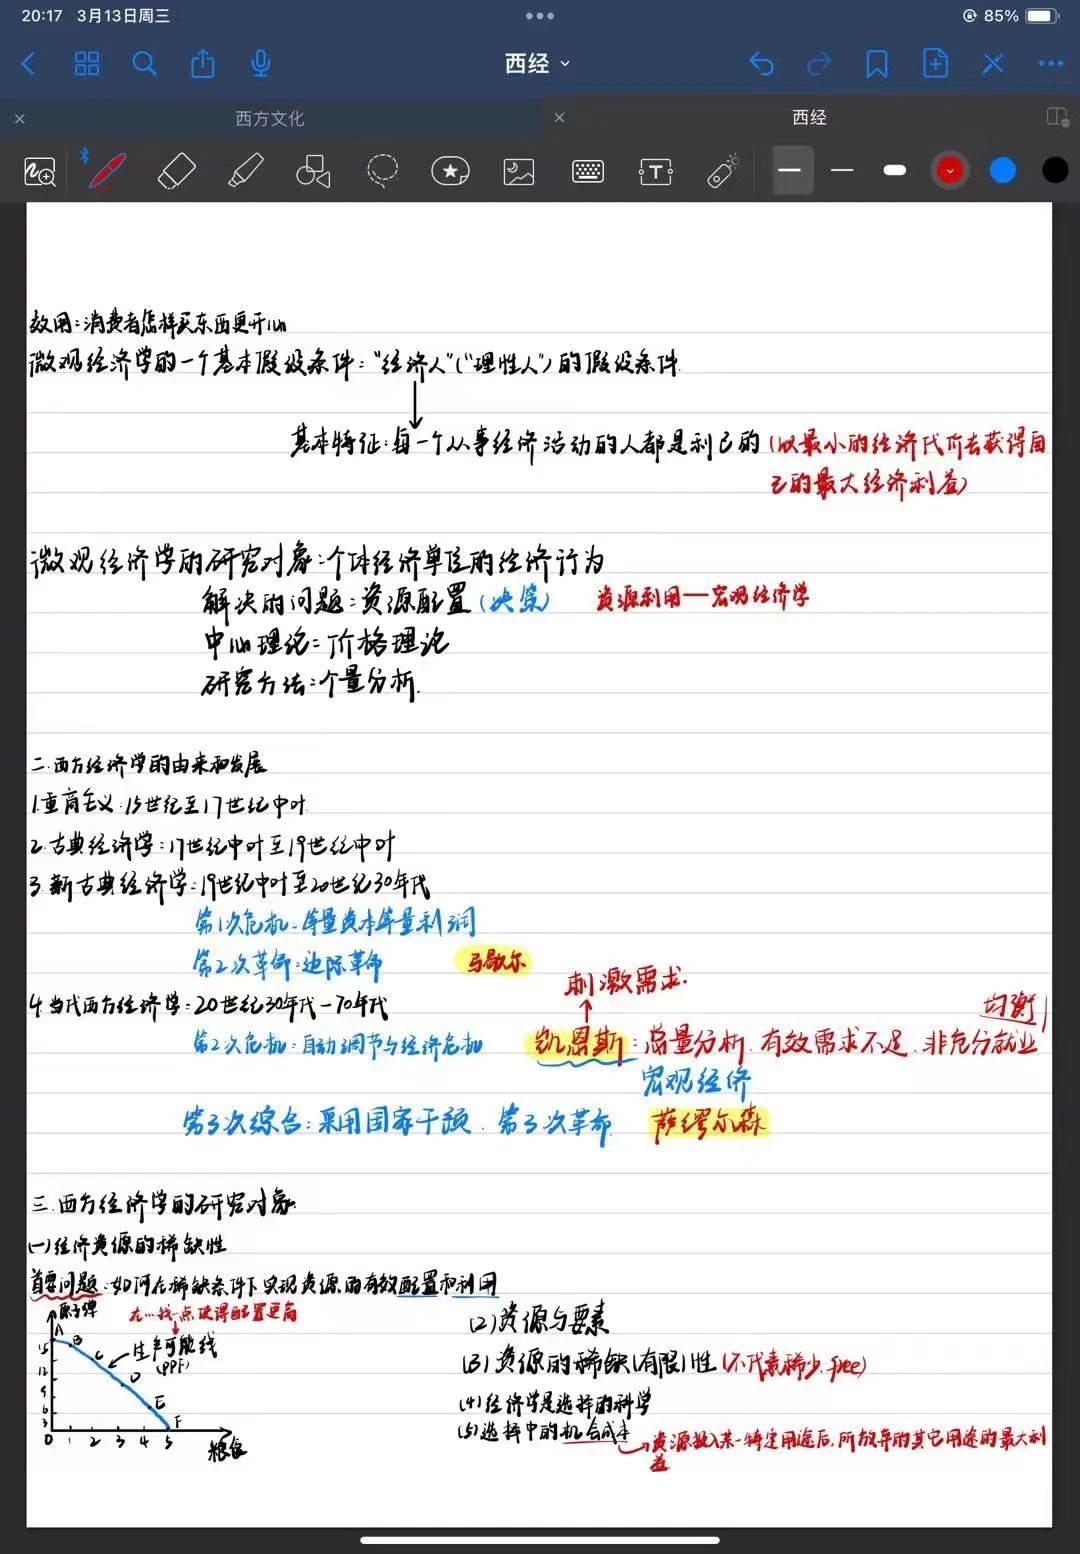 20:17 3月13日周三
85%
西经
西方文化
西经
效用:消费者怎样买东西更开心
微观经济学的一个基本假设条件:“经济人”(“理性人”)的假设条件
基本特征:每一个从事经济活动的人都是利己的(以最小的经济代价去获得自
己的最大经济利益)
微观经济学的研究对象:个体经济单位的经济行为
解决的问题:资源配置(决策) 资源利用—宏观经济学
中心理论:价格理论
研究方法:个量分析.
二.西方经济学的由来和发展
1.重商主义:15世纪至17世纪中叶
2.古典经济学:17世纪中叶至19世纪中叶
3.新古典经济学:19世纪中叶至20世纪30年代
第1次危机:等量资本等量利润
第2次革命:边际革命 马歇尔
刺激需求.
4.当代西方经济学:20世纪30年代-70年代 均衡
第2次危机:自动调节与经济危机 凯恩斯:总量分析.有效需求不足.非充分就业
宏观经济
第3次综合:采用国家干预.第3次革命 萨缪尔森
三.西方经济学的研究对象
(一)经济资源的稀缺性
首要问题:如何在稀缺条件下实现资源的有效配置和利用
原子弹 在…找一点使得配置更高
A
15 B
生产可能线
(PPF)
12 C
9 D
6 E
3 F
0 1 2 3 4 5
粮食
(2)资源与要素
(3)资源的稀缺(有限)性(不代表稀少.free)
(4)经济学是选择的科学
(5)选择中的机会成本→资源投入某一特定用途后,所放弃的其它用途的最大利
益